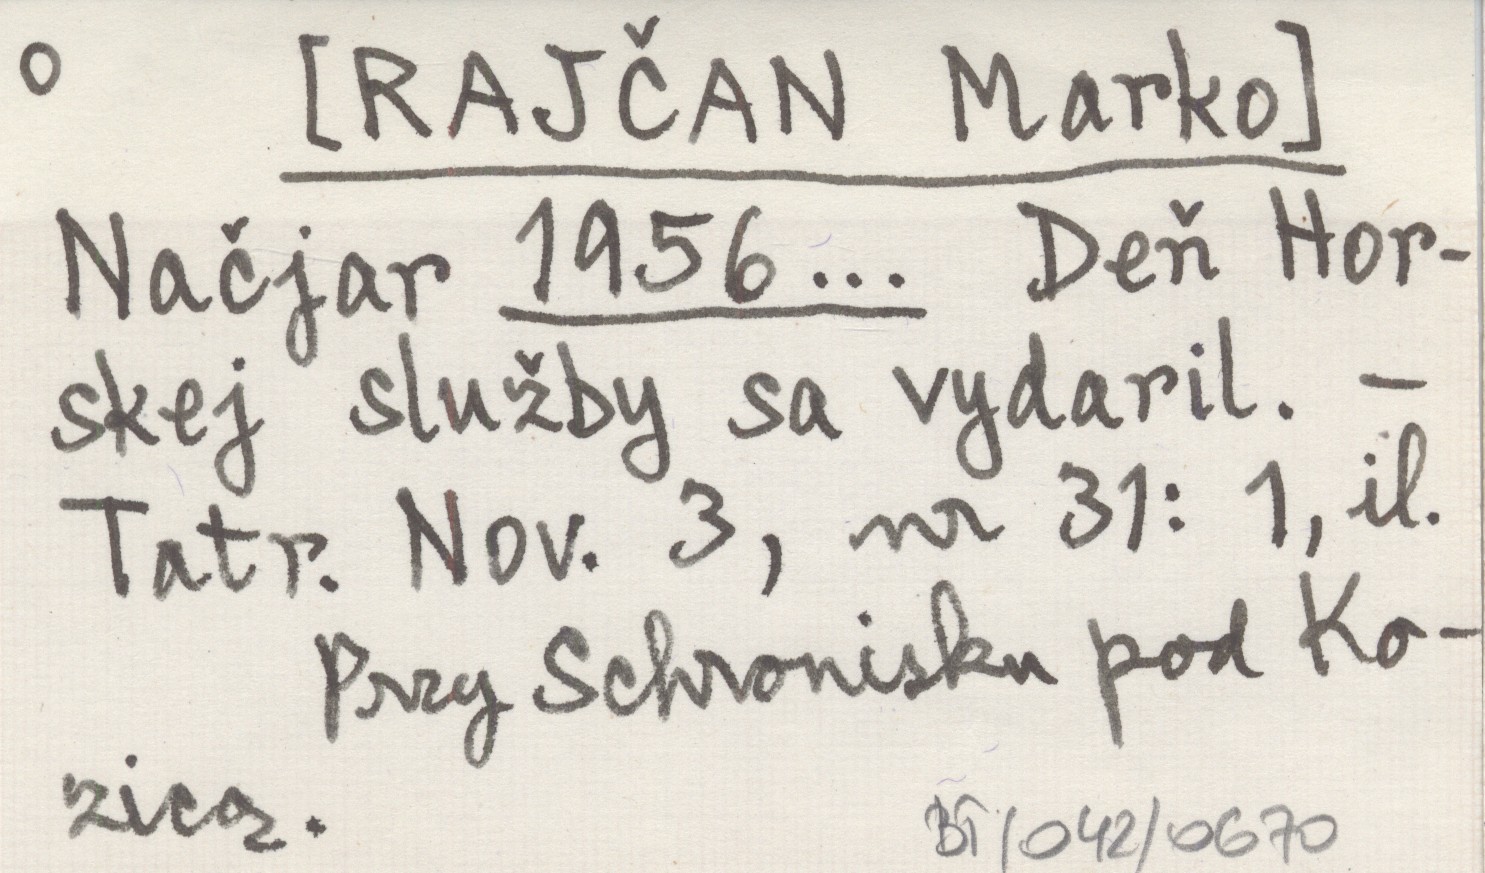 o [RAJČAN Marko]
Načjar 1956... Deň Hor-
skej služby sa vydaril. –
Tatr. Nov. 3, nr 31: 1, il.
Przy Schronisku pod Ko-
zicą.
BT/042/0670